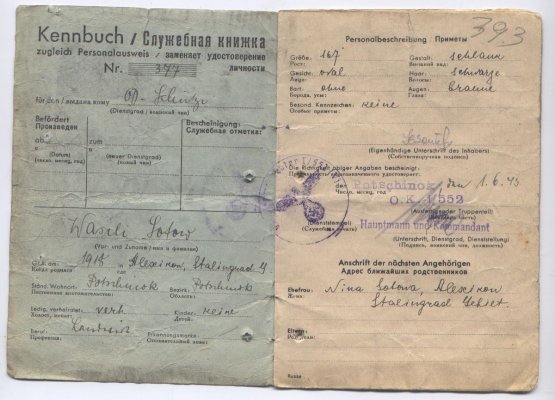 Kennbuch / Служебная книжка
zugleich Personalausweis / заменяет удостоверение
Nr. 377 личности
für den / выдана кому O.D.-Schütze
(Dienstgrad / воинский чин)
Befördert
Произведен
Bescheinigung:
Служебная отметка:
ab zum
(Datum)
(число, месяц, год)
(neuer Dienstgrad)
(новый чин)
Wasili Sotow
(Vor- und Zuname / имя и фамилия)
geb. am 1914 in Alexikow, Stalingrad G
Когда родился где
Ständ. Wohnort: Potschinok Bezirk: Potschinok
Постоянное местожительство: Область:
Ledig, verheiratet: verh. Kinder: keine
Холост, женат: Детей:
Beruf: Landwirt Erkennungsmarke:
Профессия: Опознавательный знак:
393
Personalbeschreibung / Приметы
Größe: 167 Gestalt: schlank
Рост: Внешний вид:
Gesicht: oval Haar: schwarze
Лицо: Волосы:
Bart: ohne Augen: braune
Борода, усы: Глаза:
Besond. Kennzeichen: keine
Особые приметы:
(Eigenhändige Unterschrift des Inhabers)
(Собственноручная подпись)
Die Richtigkeit obiger Angaben bescheinigt:
den 1.6.43
Potschinok
Число, месяц, год
O.K. I/552
(Ausfertigender Truppenteil)
Hauptmann und Kommandant
(Dienststempel)
(Unterschrift, Dienstgrad, Dienststellung)
(Подпись, воинский чин, должность)
Anschrift der nächsten Angehörigen
Адрес ближайших родственников
Ehefrau: Nina Sotowa, Alexikow
Жена: Stalingrad Gebiet.
Eltern:
Родители:
Russe